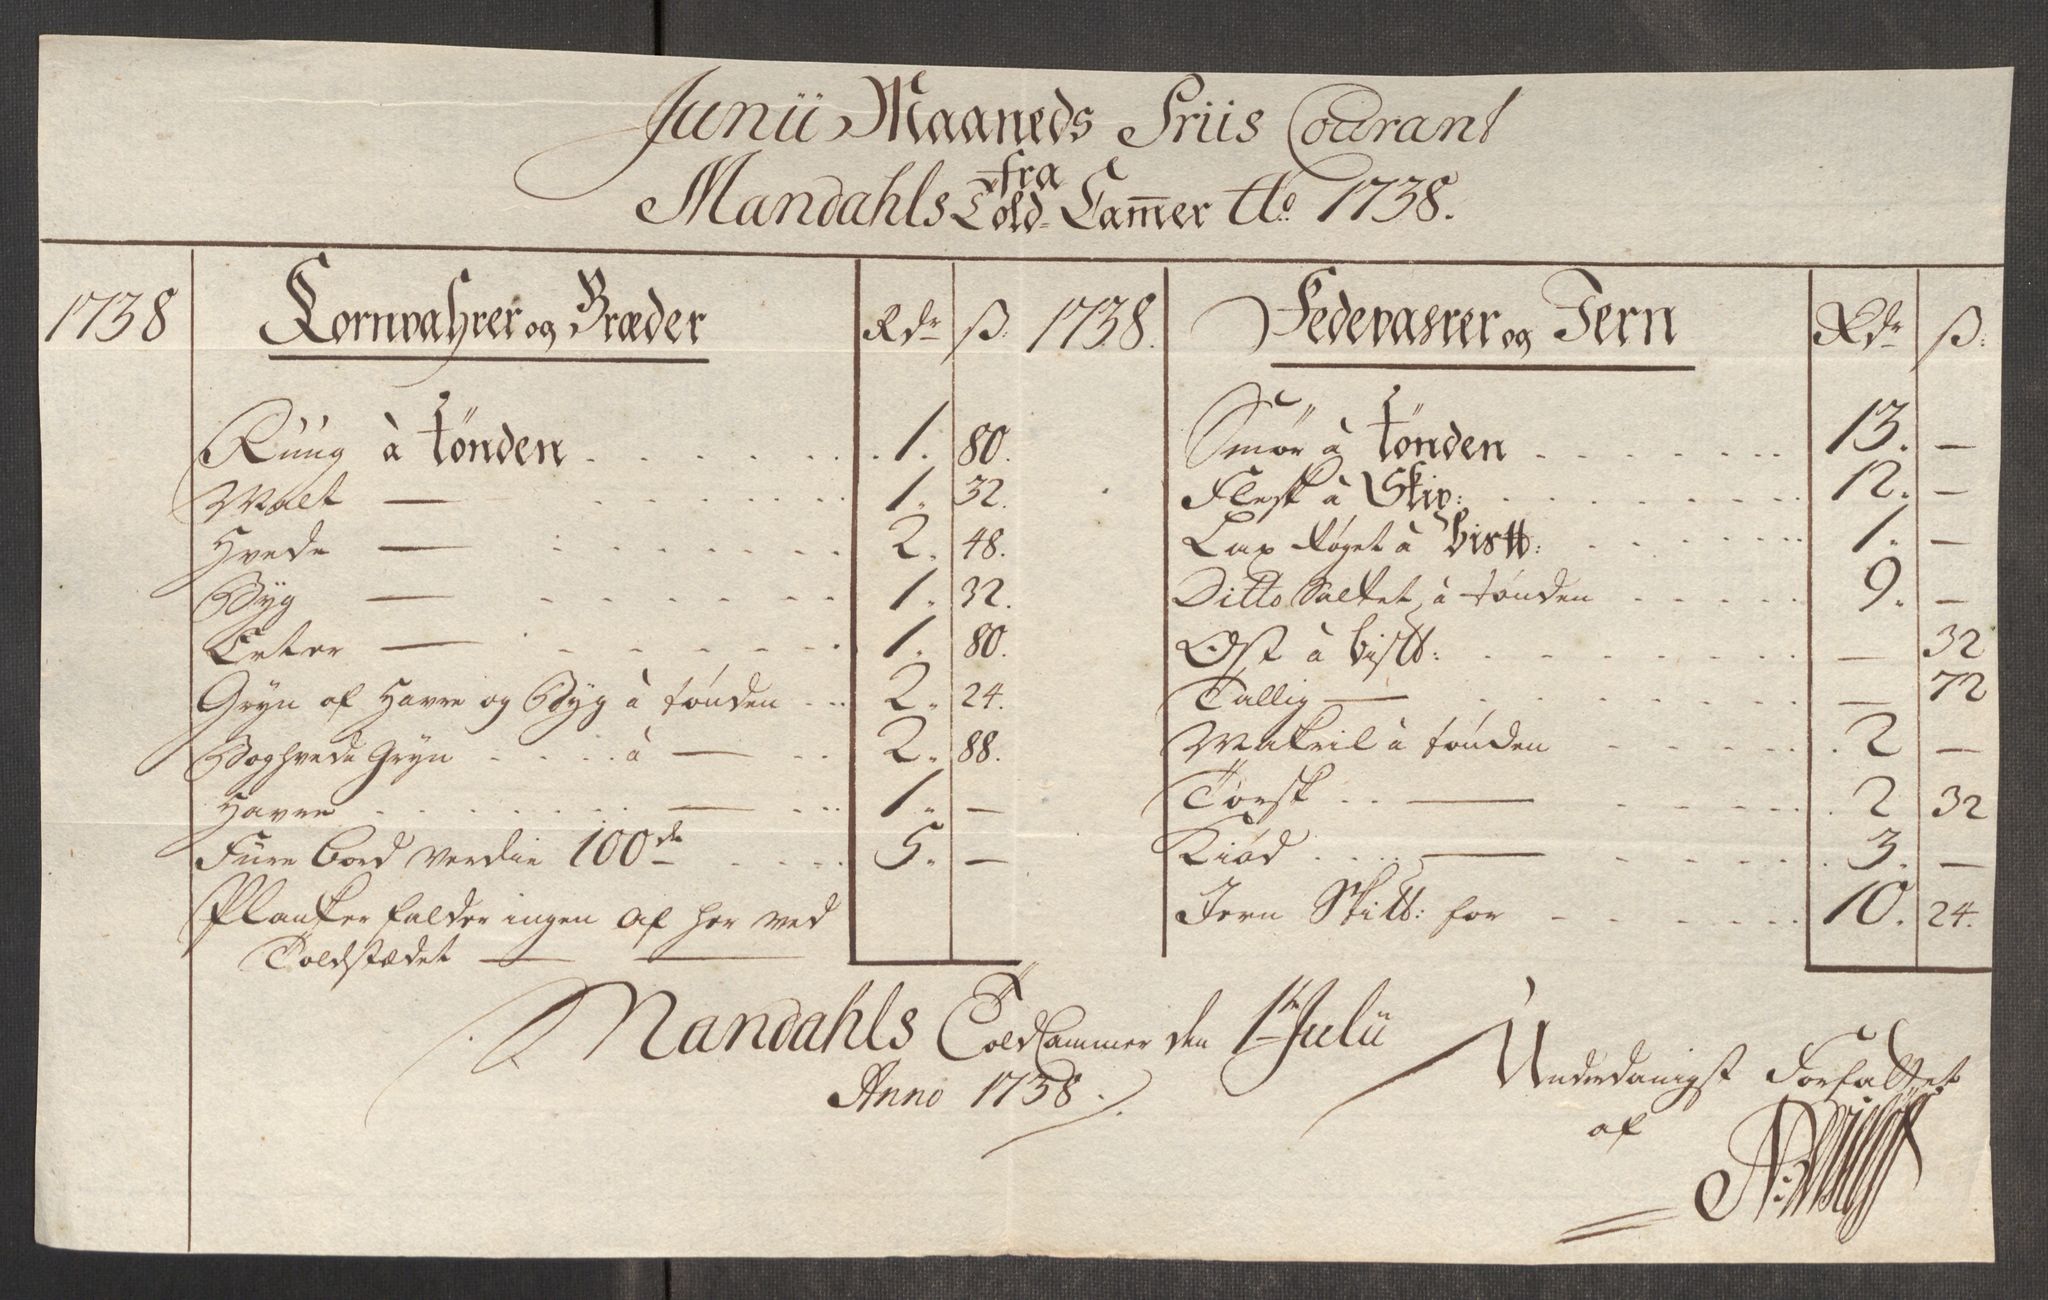 Junii Maaneds Priis Courant
fra
Mandahls Told-Cam̅er Ao. 1738.
1738 Kornvahrer og Bræder Rdr ß:
Rúúg à tönden 1. 80.
Malt — 1. 32.
Hvede — 2. 48.
Byg — 1. 32.
Erter — 1. 80.
Gryn af Havre og Byg à tønden 2. 24.
Boghvede Gryn à — 2. 88.
Havre — 1. —
Fúre bord verdie 100de 5. —
Planker falder ingen af her ved
Toldstædet —
1738. Fedevahrer og Jern Rdr ß:
Smör à tönden 13. —
Flesk à Skip: 12. —
Lax røget à bistt: 1. —
Ditto Saltet à tønden 9. —
Ost à bistt: — 32
Tallig — — 72
Makril à tønden 2 —
Torsk — 2 32
Kiød — 3. —
Jern Skitt: for 10. 24.
Mandahls Told Cammer den 1te Julii
Anno 1738.
Underdanigst Forfattet
af